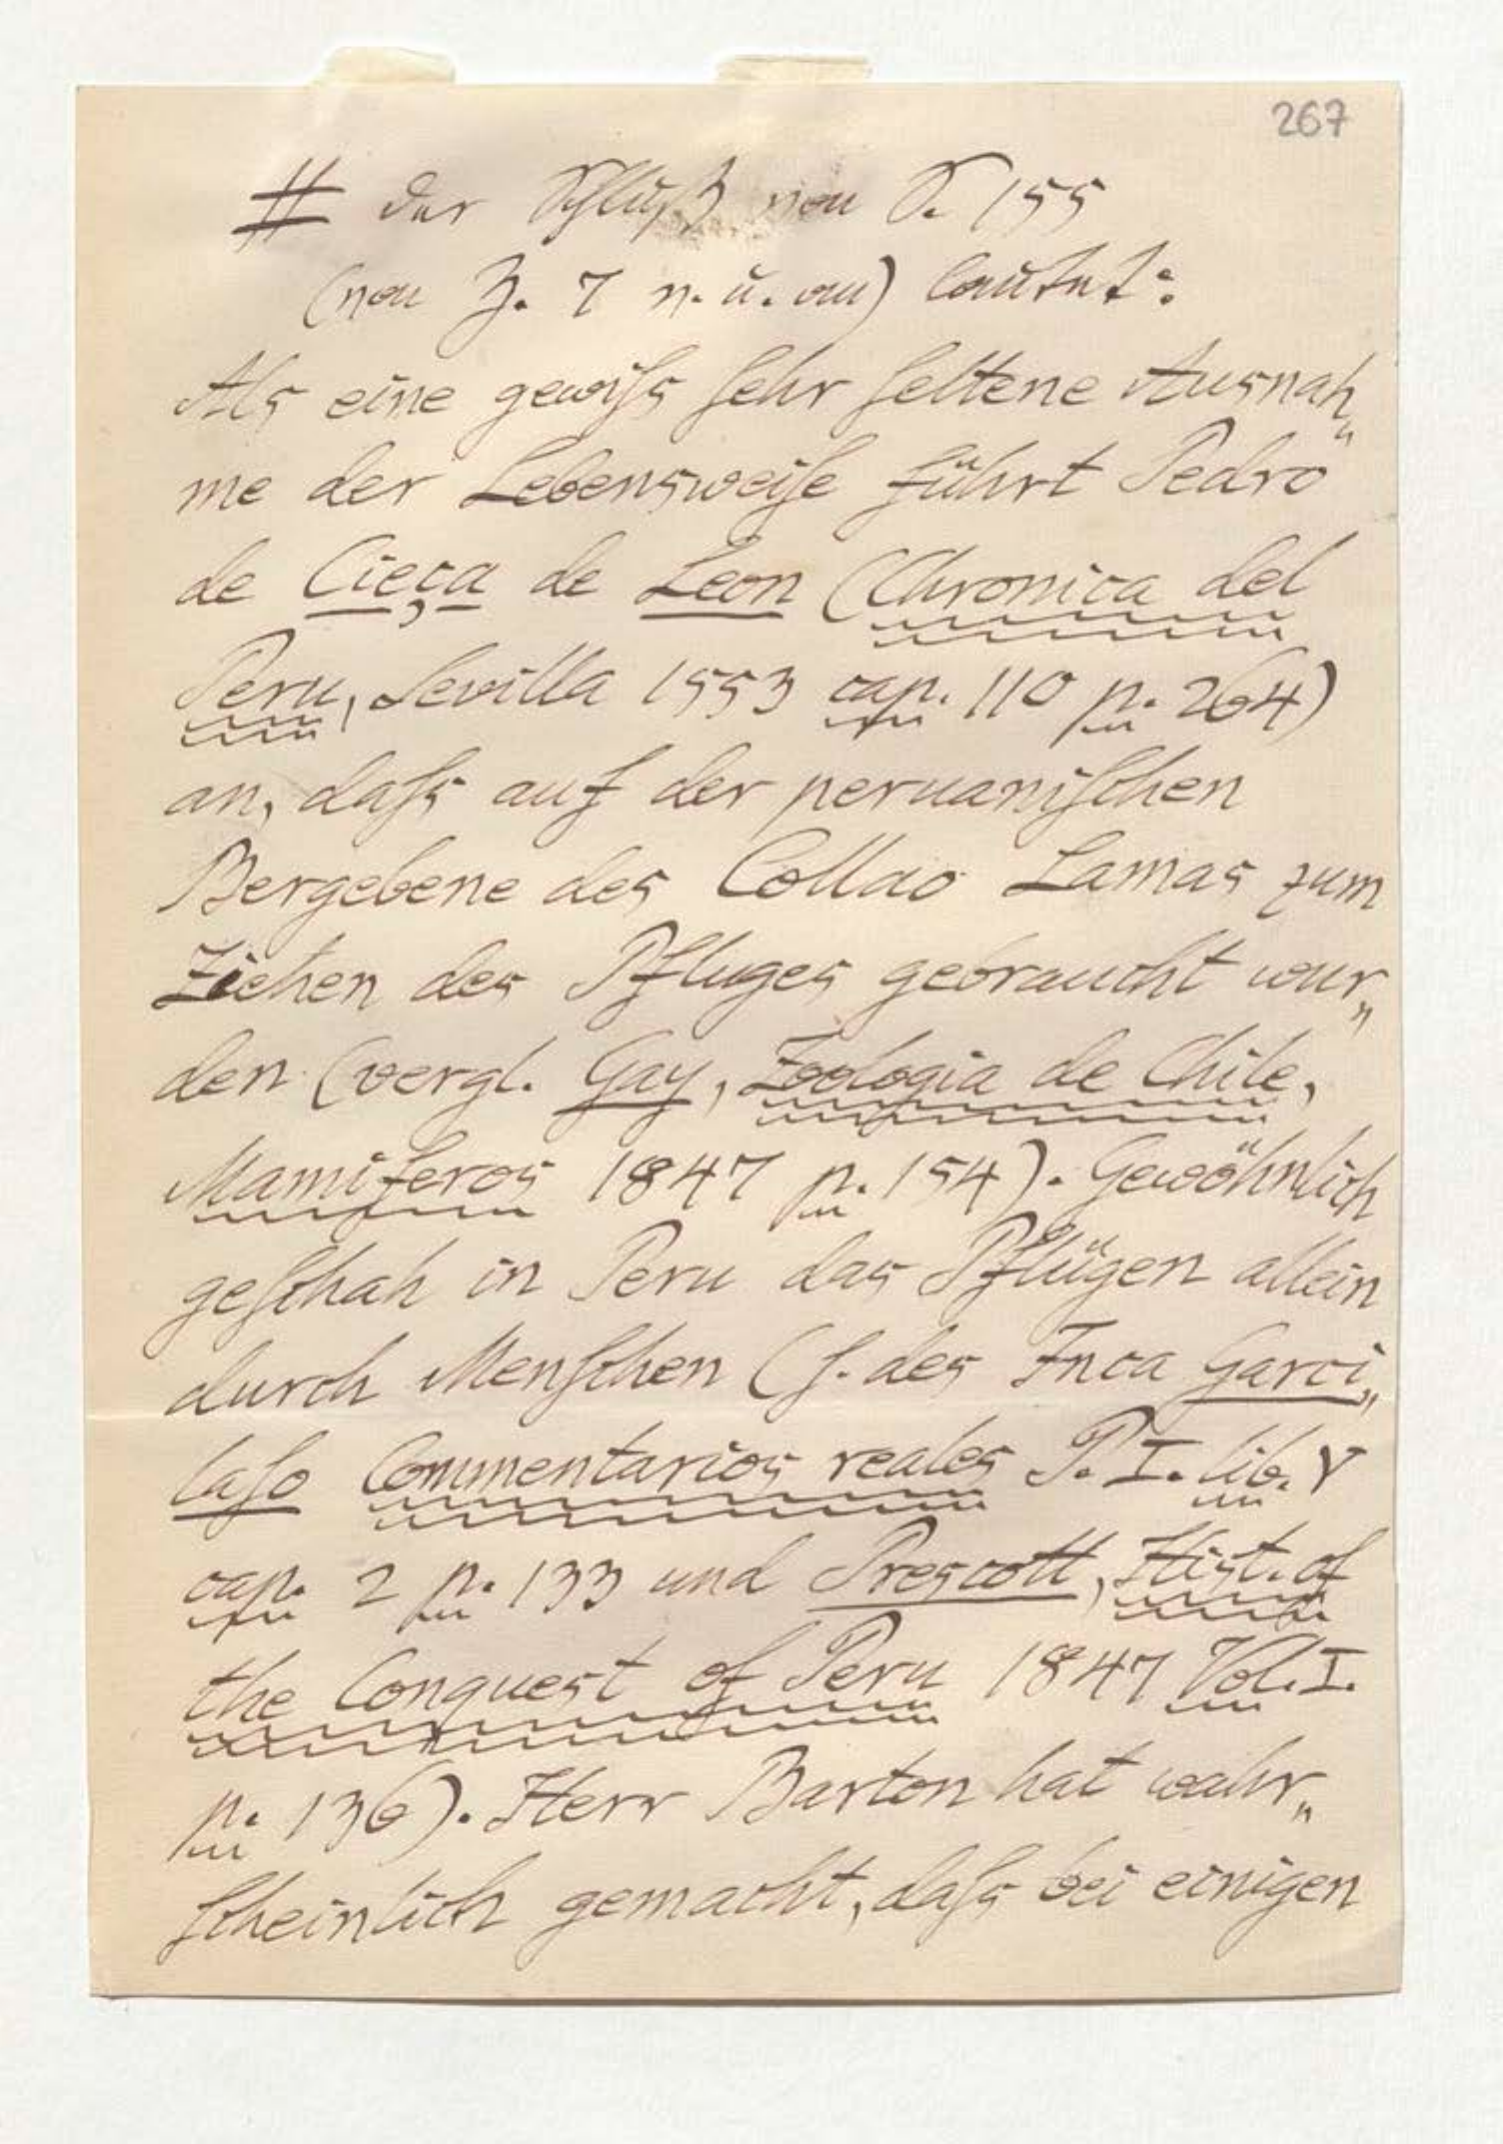 267
# Der Schluß von S. 155
(von Z. 7 v. u. an) lautet:
Als eine gewiſs ſehr ſeltene Ausnah„
me der Lebensweiſe führt Pedro
de Cieça de Leon (Chronica del
Peru, Sevilla 1553 cap. 110 p. 264)
an, daſs auf der peruaniſchen
Bergebene des Collao Lamas zum
Ziehen des Pfluges gebraucht wur„
den (vergl. Gay, Zoologia de Chile,
Mamiferos 1847 p. 154). Gewöhnlich
geſchah in Peru das Pflügen allein
durch Menſchen (ſ. des Inca Garci„
laſo Commentarios reales P. I. lib. V
cap. 2 p. 133 und Prescott, Hist. of
the Conquest of Peru 1847 Vol. I.
p. 136). Herr Barton hat wahr„
ſcheinlich gemacht, daſs bei einigen